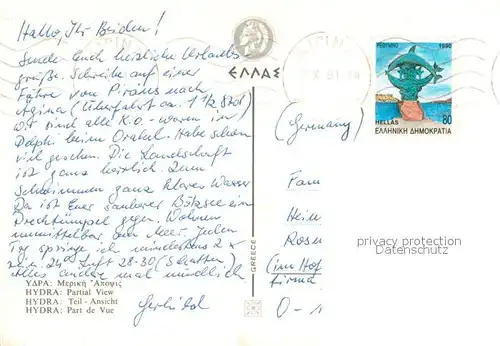 Hallo, Ihr Beiden!
Sende Euch herzliche Urlaubs
grüße. Schreibe auf einer
Fähre von Piräus nach
Ägina (Überfahrt ca. 1 1/2 Std)
Wir sind alle K.O. - waren in
Delphi beim Orakel. Habe schon
viel gesehen. Die Landschaft
ist ganz herrlich. Zum
Schwimmen ganz klares Wasser
Da ist Euer sauberer Bötzsee ein
Drecktümpel gegen. Wohnen
unmittelbar am Meer. Jeden
Tag springe ich mindestens 2 x
rein. 24° Luft 28-30 (Schatten)
Alles andere mal mündlich
ΥΔΡΑ: Μερική Ἄποψις
HYDRA: Partial View
HYDRA: Teil - Ansicht
HYDRA: Part de Vue
ΕΛΛΑΣ
GREECE
ΡΕΘΥΜΝΟ 1990
HELLAS 80
ΕΛΛΗΝΙΚΗ ΔΗΜΟΚΡΑΤΙΑ
(Germany)
Fam
Hein
Rosen
(im Hof
Firma
O-1
privacy protection
veikkos-archiv.de